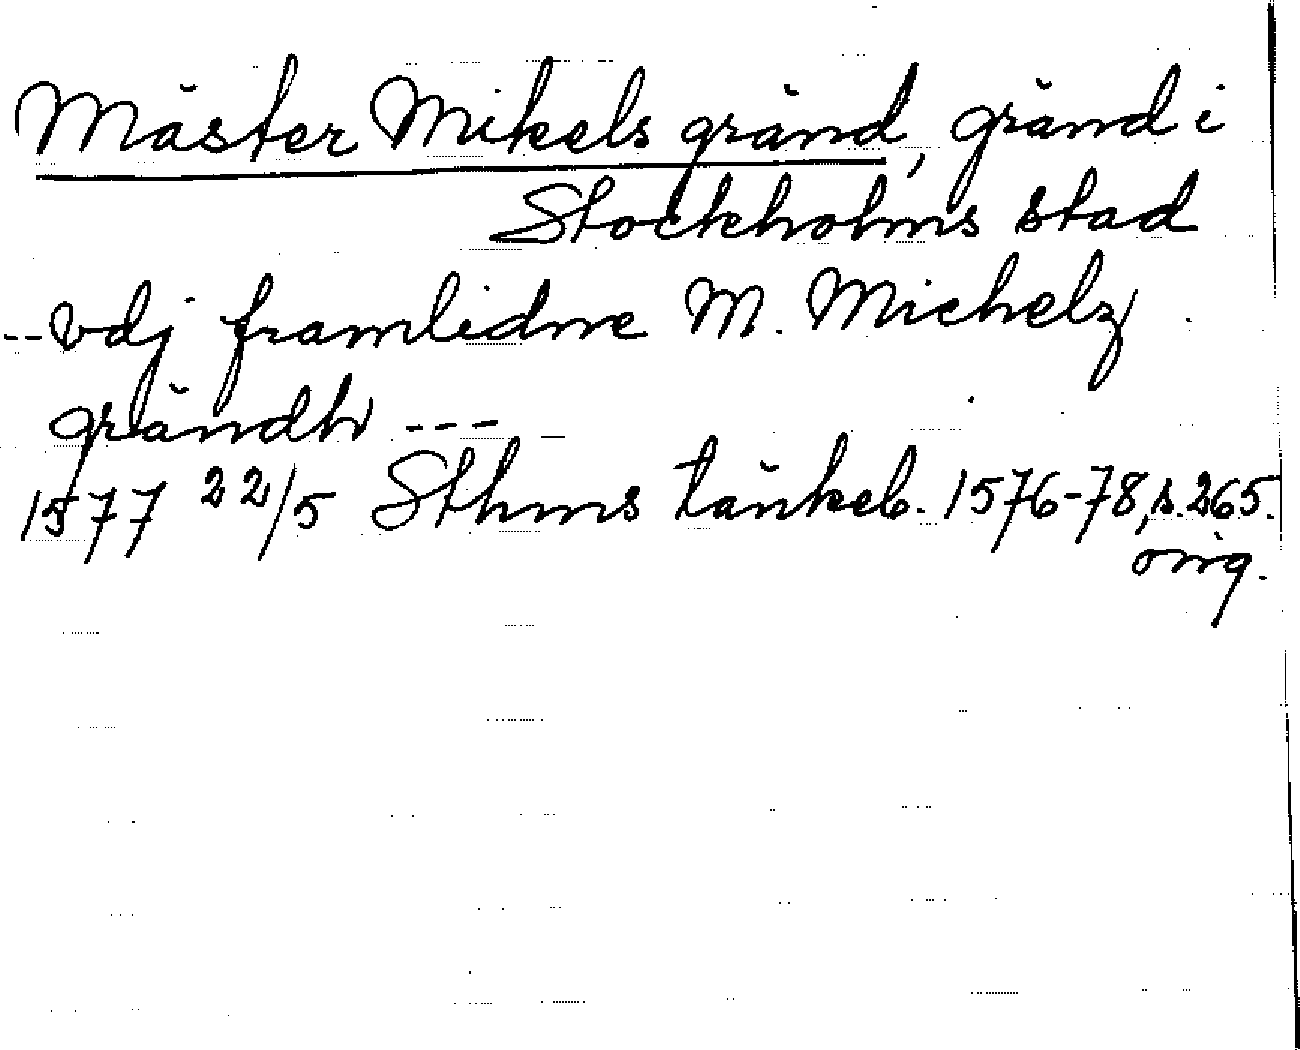 Mäster Mikels gränd, gränd i
Stockholms stad
-- vdj framlidne M. Michelz
gråndh ---
1577 22/5 Sthms tänkeb. 1576-78, s. 265.
orig.